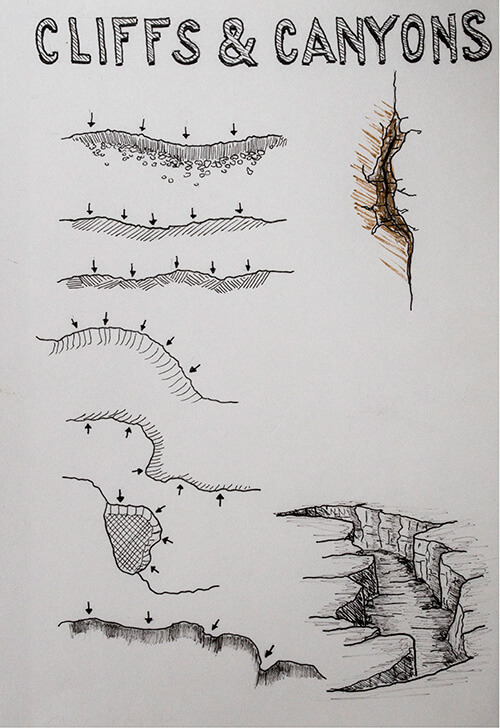 CLIFFS & CANYONS